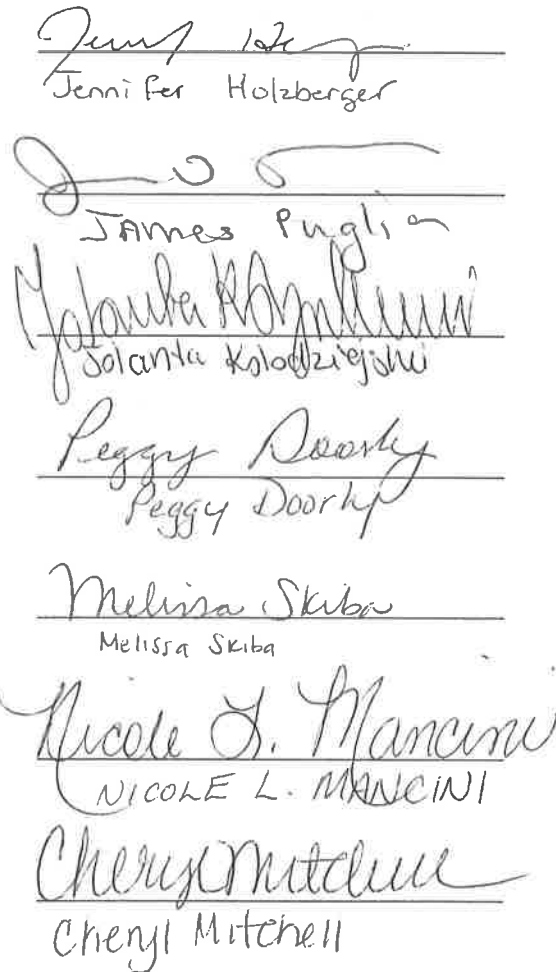 Jennifer Holzberger
James Puglia
Jolanta Kolodziejski
Peggy Doorly
Peggy Doorly
Melissa Skiba
Melissa Skiba
Nicole L. Mancini
NICOLE L. MANCINI
Cheryl Mitchell
Cheryl Mitchell